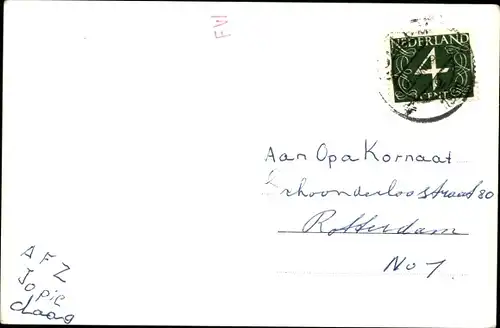 FM
NEDERLAND
4
CENT
Aan Opa Kornaat
Schoonderloostraat 80
Rotterdam
No 1
AFZ
Jopie
daag